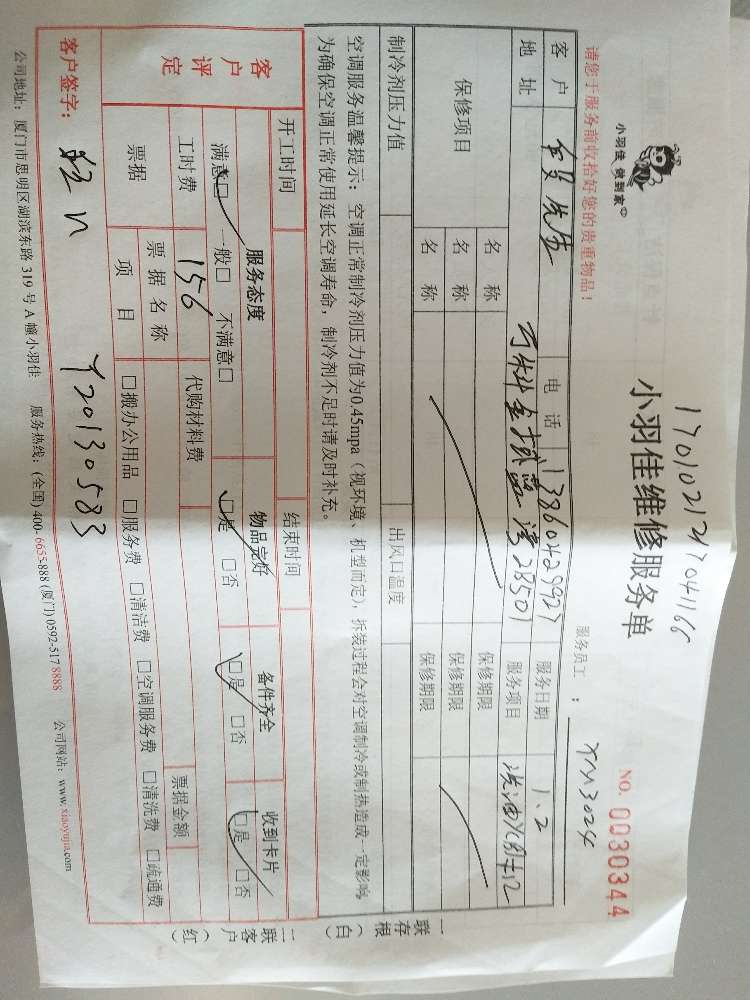 1701021247041166
小羽佳 做到家
小羽佳维修服务单
NO. 0030344
请您于服务前收拾好您的贵重物品！
服务员工：XM3024
客户 先生 电话 13860429927 服务日期 1.2
地址 28501 服务项目 洗油
保修项目 名称 保修期限
名称 保修期限
名称 保修期限
制冷剂压力值 出风口温度
空调服务温馨提示：空调正常制冷剂压力值为0.45mpa（视环境、机型而定），拆装过程会对空调制冷或制热造成一定影响，
为确保空调正常使用延长空调寿命，制冷剂不足时请及时补充。
一联存根（白）
一联客户（红）
开工时间 结束时间
客户评定 服务态度 物品完好 备件齐全 收到卡片
满意□ 一般□ 不满意□ □是 □否 □是 □否 □是 □否
工时费 156 代购材料费
票据 票据名称 票据金额
项目 □搬办公用品 □服务费 □清洁费 □空调服务费 □清洗费 □疏通费
客户签字： Y20130583
公司地址：厦门市思明区湖滨东路 319 号 A 幢小羽佳 服务热线：(全国) 400-6655-888 (厦门) 0592-517 8888 公司网站：www.xiaoyujia.com